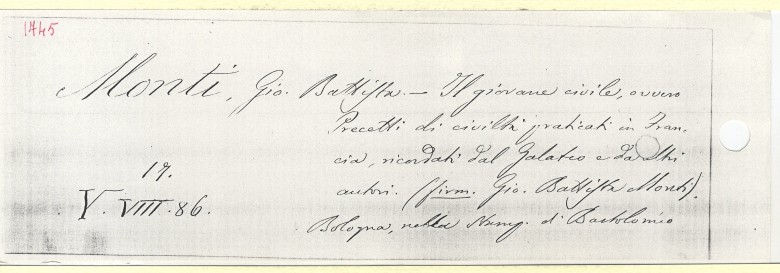 1745
Monti, Gio. Battista. — Il giovane civile, ovvero
Precetti di civiltà praticati in Fran-
cia, ricordati dal Galateo e da altri
autori. (firm. Gio. Battista Monti).
17.
V. VIII. 86.
Bologna, nella Stamp. di Bartolomio